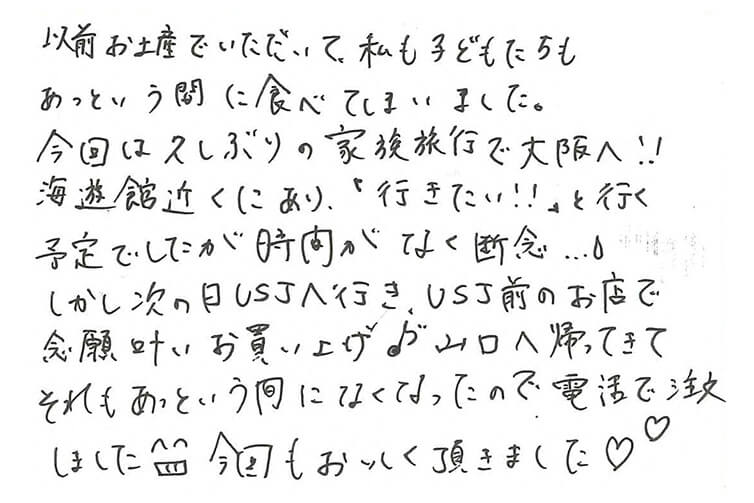 以前お土産でいただいて、私も子どもたちも
あっという間に食べてしまいました。
今回は久しぶりの家族旅行で大阪へ!!
海遊館近くにあり、「行きたい!!」と行く
予定でしたが時間がなく断念...
しかし次の日USJへ行き、USJ前のお店で
念願叶いお買い上げ♪ 山口へ帰ってきて
それもあっという間になくなったので電話で注文
しました 今回もおいしく頂きました♡♡